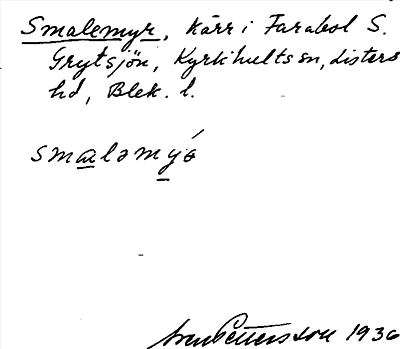 Smalemyr, Kärr i Farabol S.
Grytsjön, Kyrkhults sn, Listers
hd, Blek. l.
smaləmýɞ
Sven Pettersson 1936